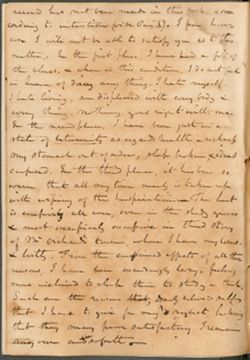 record has not been made in this book accor-
cording to intention
ever I will not be able to satisfy you as to this
matter. In the first place, I have had a fit of
the blues, & when in this condition, I do not feel
in humor of doing any thing. I hate myself
I hate living, am displeased with every body &
every thing, nothing goes right with me.
In the second place, I have been just in a
state of as regards health, a
my stomach out of order, sleep broken &
confused. In the third place, it has been so
warm, that all my time nearly is taken up
with wiping off the perspiration. The heat
is excessive all over, even in the study
& most excessively oppressive in third story
of Mr tavern where I have my lodge
& . From the combined effects of all these
reasons, I have been exceedingly lazy, feeling
more inclined to sleep than to study or think.
Such are the reasons that
that I have to give for my neglect hoping
that they may prove satisfactory I remain
ever and so forth